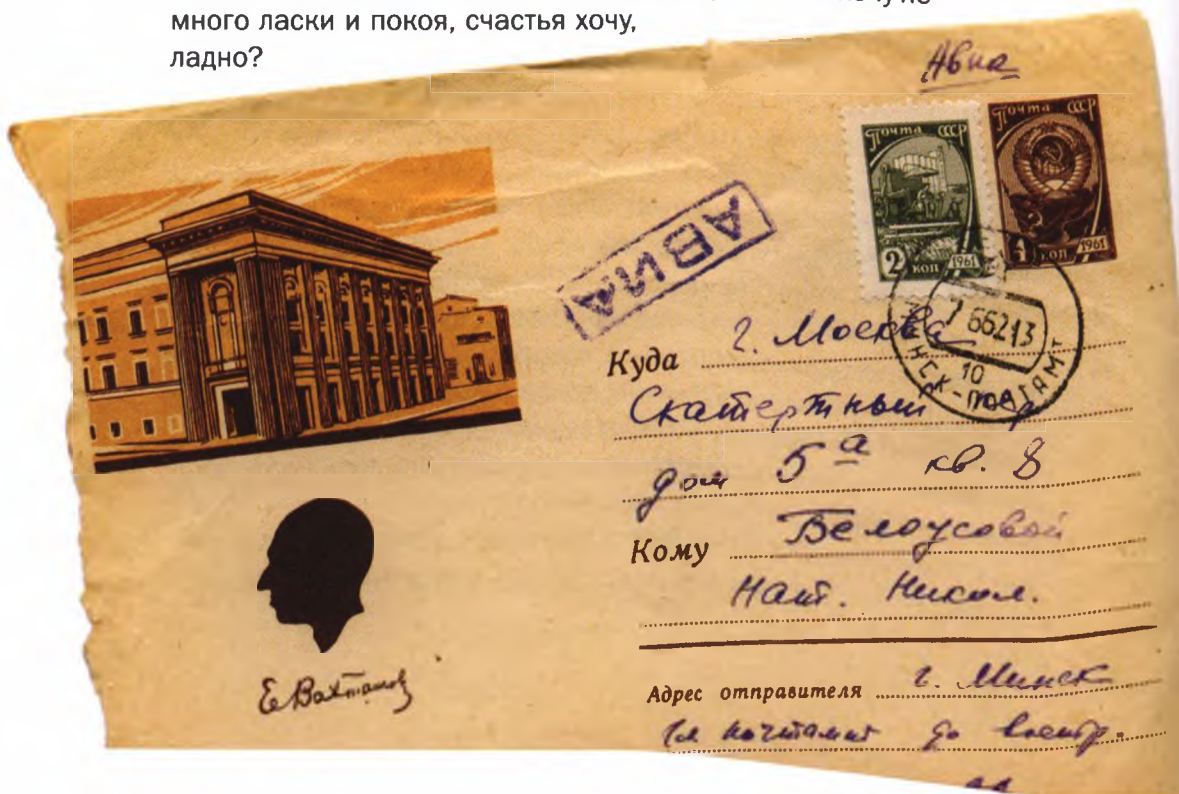 много ласки и покоя, счастья хочу,
ладно?
Авиа
Почта СССР
2 коп 1961
Почта СССР
4 коп 1961
АВИА
7 66213
10
МИНСК-ПОЧТАМТ
Куда г. Москва
Скатертный пер
дом 5а кв. 8
Кому Белоусовой
Нат. Никол.
Е. Вахтангов
Адрес отправителя г. Минск
почтамт до востр.